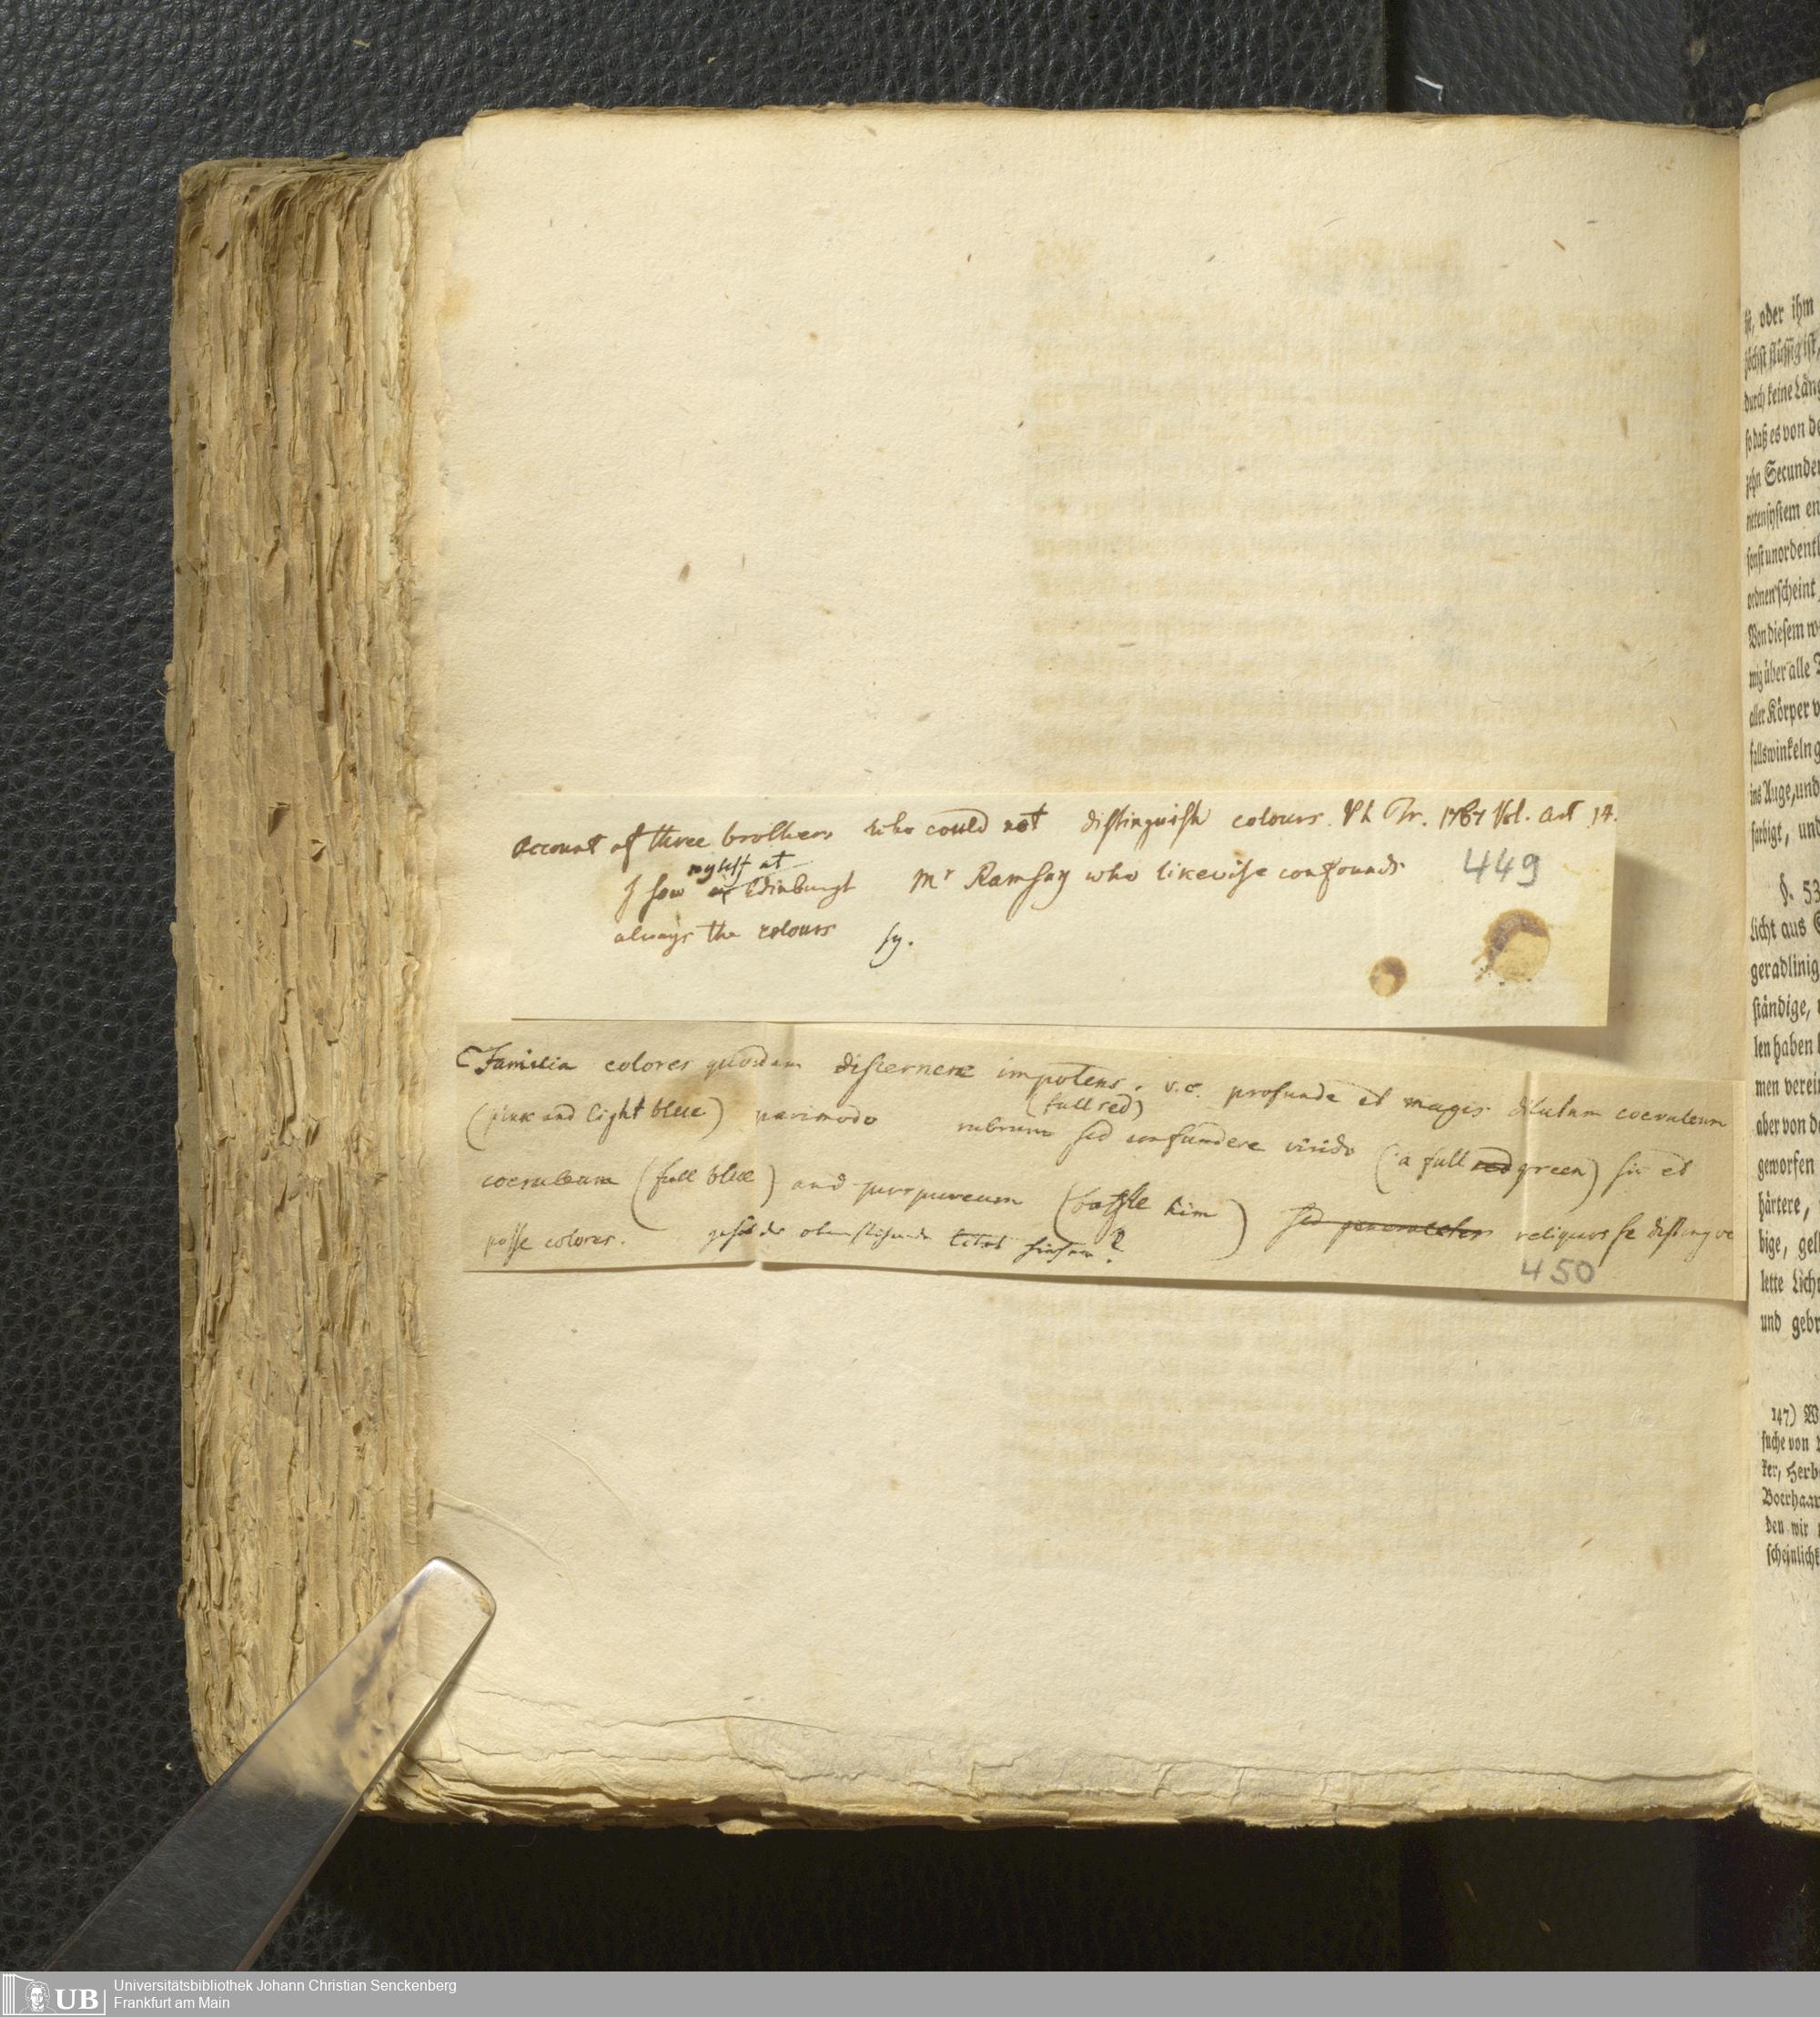 Account of three brothers who could not distinguish colours. Ph Tr. 1767 Vol. Art 14.
myself at
I saw Edinburgh Mr Ramsay who likewise confounds
449
always the colours sy.
Familia colores quosdam discernere impotens. v.c. profunde et magis dilutum coeruleum
(full red)
(pink and light blue) parimodo rubrum sed confundere viride (a full red green) sic et
coeruleum (full blue) and purpureum (baffle him) sed reliquos se distingve
posse colores.
450
se, oder ihm
höchst flüssig ist,
durch keine Läng
so daß es von de
zehn Secunden
netensystem en
sonst unordentl
ordnen scheint
Von diesem w
mig über alle
aller Körper v
fallswinkeln g
ins Auge, und
farbigt, und
§. 53
Licht aus
geradlinig
ständige,
len haben
men verei
aber von de
geworfen
härtere,
bige, gel
lette Lich
und gebr
147) W
suche von
ker, Herb
Boerhaav
den wir
scheinlichk
UB Universitätsbibliothek Johann Christian Senckenberg
Frankfurt am Main